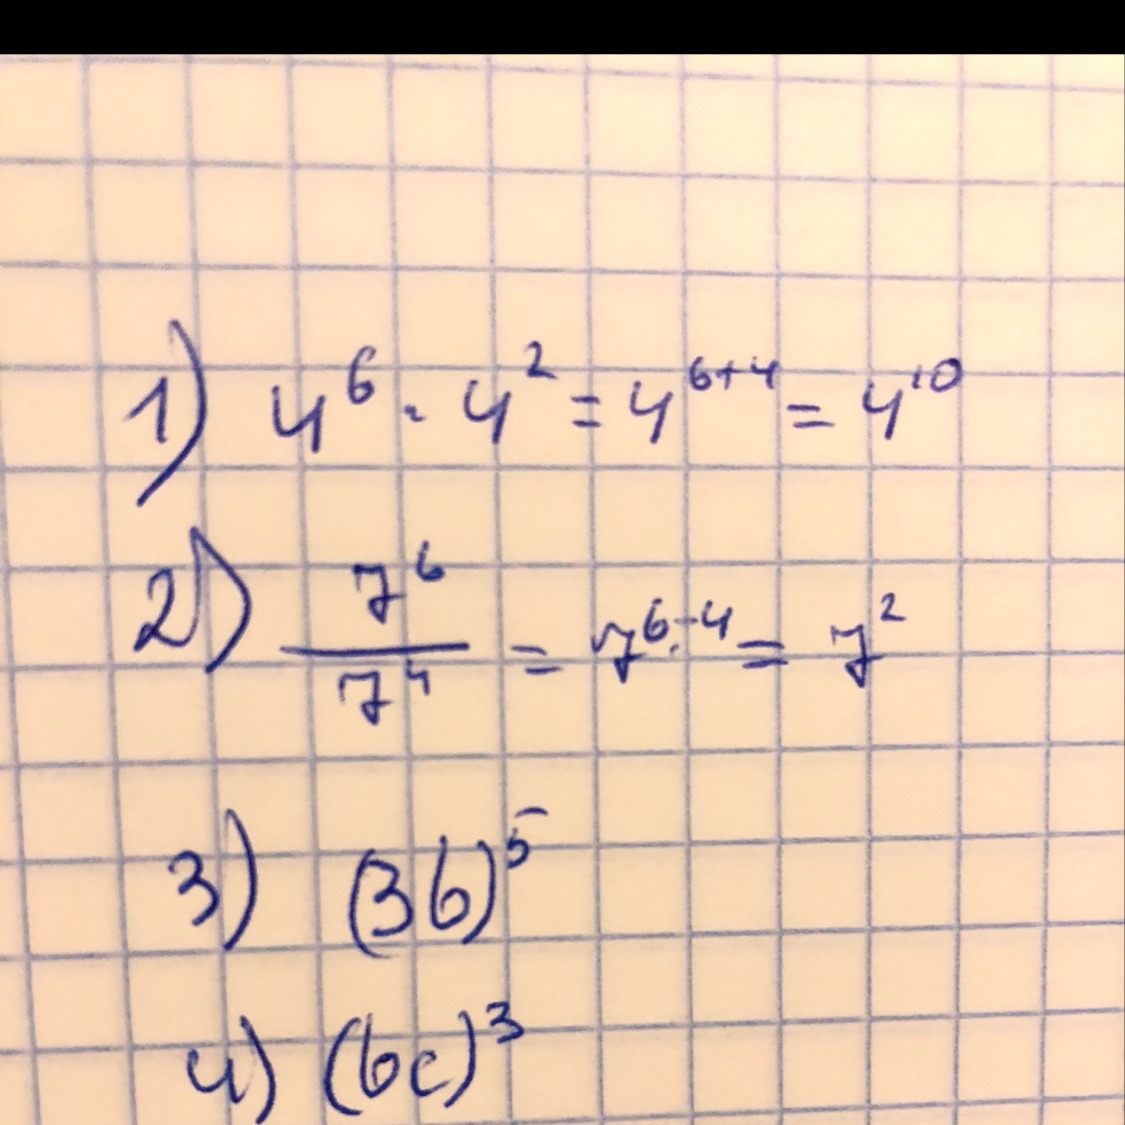 1) 4⁶ · 4² = 4⁶⁺⁴ = 4¹⁰
2) 7⁶/7⁴ = 7⁶⁻⁴ = 7²
3) (3b)⁵
4) (bc)³